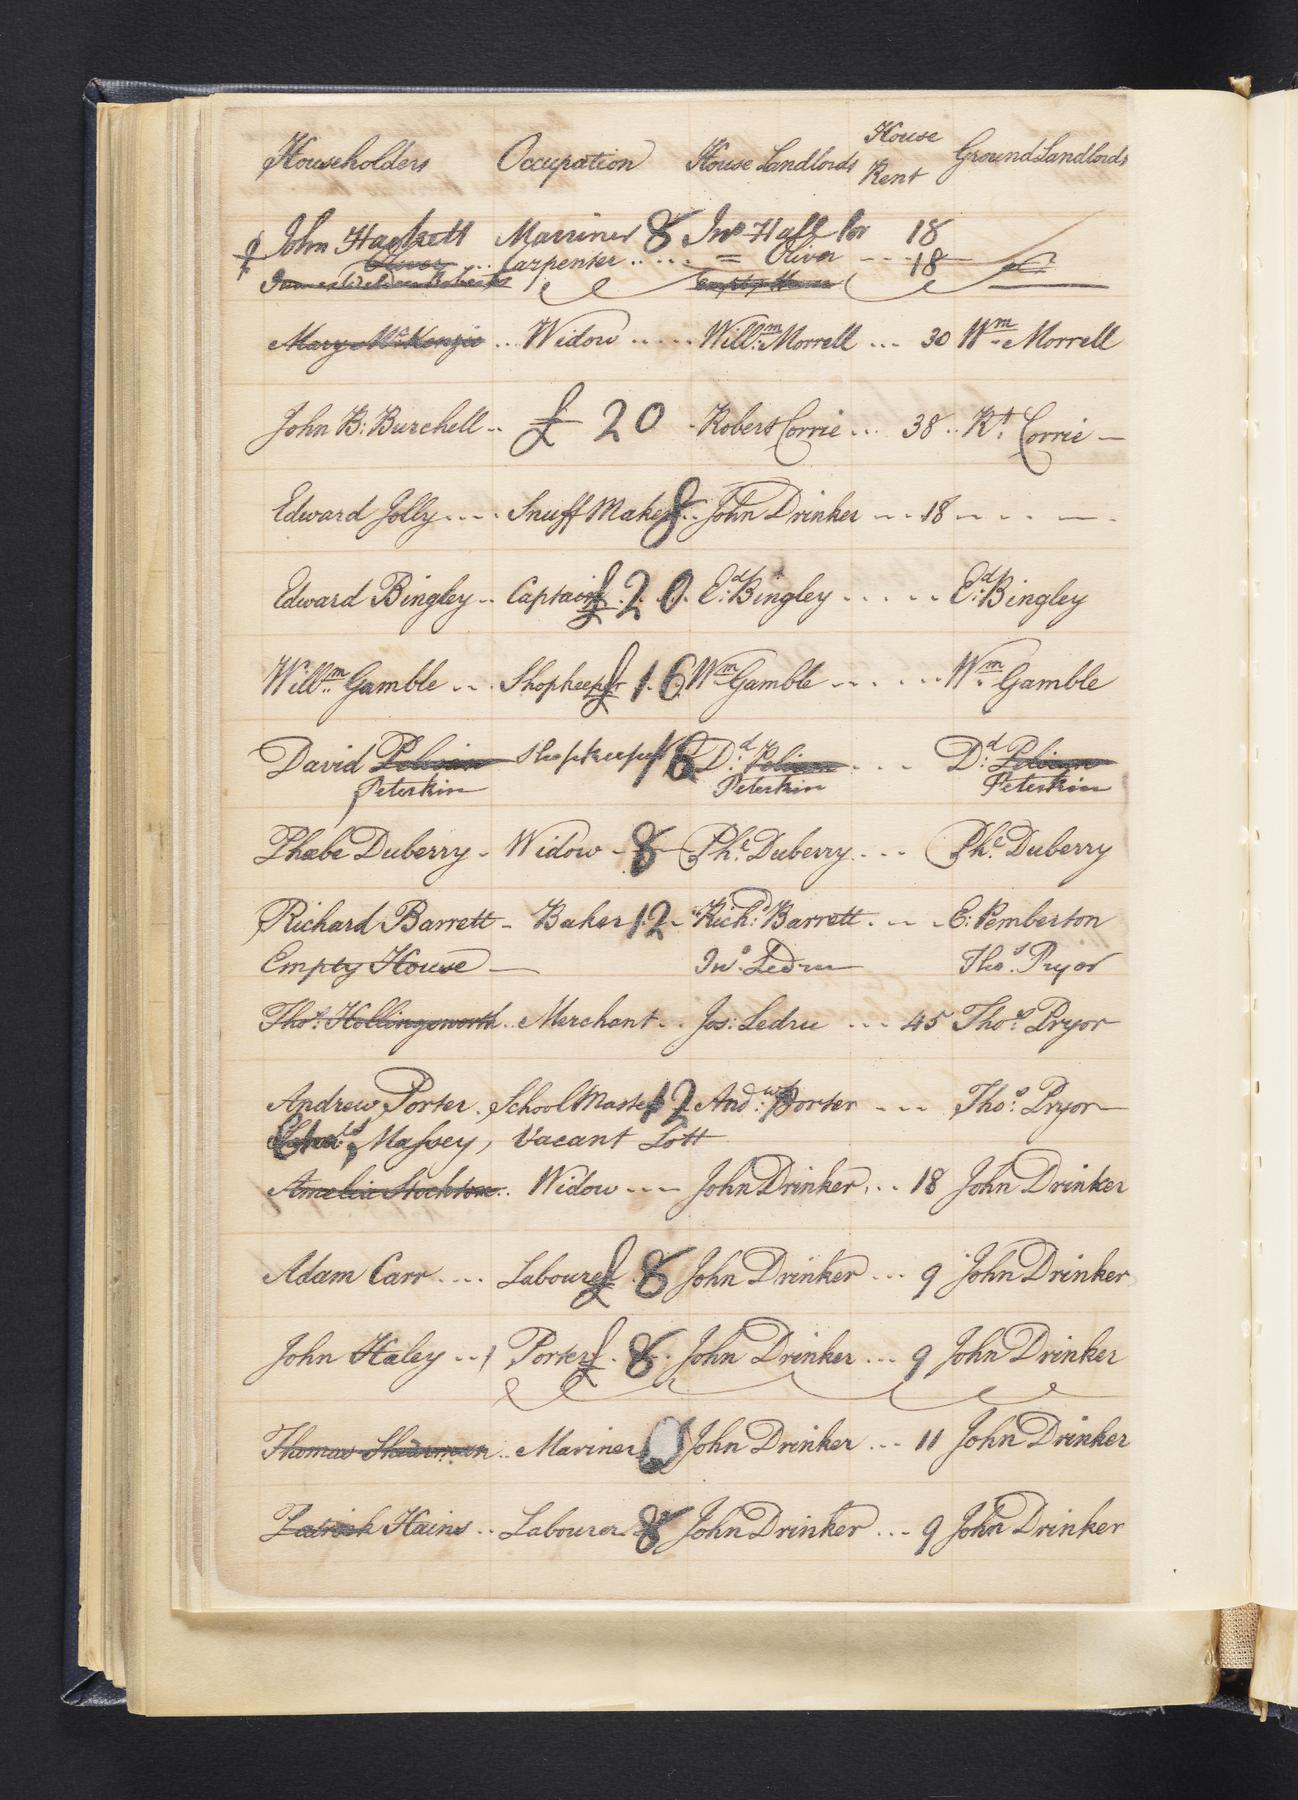 Householders Occupation House Landlords House Rent Ground Landlords
John Hackett Marriner 8 Jno Hall for 18
Oliver ... Carpenter ..... = Oliver --- 18
Empty House
Mary McKenzie ... Widow ..... Willm: Morrell ... 30 Wm Morrell
John B: Burchell .. £ 20 . Robert Corrie ... 38 .. Rt: Corrie —
Edward Jolly .... Snuff Maker 8 .. John Drinker --- 18 - - - — .
Edward Bingley .. Captain £ 20 Ed: Bingley ..... Ed: Bingley
Willm: Gamble ... Shopkeeper £ 16 Wm Gamble ..... Wm: Gamble
David Shopkeeper 16 Dd: .... Dd:
Peterkin Peterkin Peterkin
Phæbe Duberry - Widow - 8 Phe: Duberry .... Phe: Duberry
Richard Barrett - Baker 12 - Richd: Barrett .... E: Pemberton
Empty House — Jno. Ledru Thos. Pryor
Thos: Hollingsworth .. Merchant .. Jos: Ledru ... 45 Thos: Pryor
Andrew Porter . School Master 12 Andw: Porter --- Thos: Pryor
Massey, Vacant Lott
Amelia Stockton .. Widow --- John Drinker ... 18 John Drinker
Adam Carr .... Labourer £ 8 John Drinker ... 9 John Drinker
John Haley ... Porter £ . 8 . John Drinker ... 9 John Drinker
Thomas .. Mariner John Drinker ... 11 John Drinker
Patrick Hains .. Labourer 8 John Drinker ... 9 John Drinker